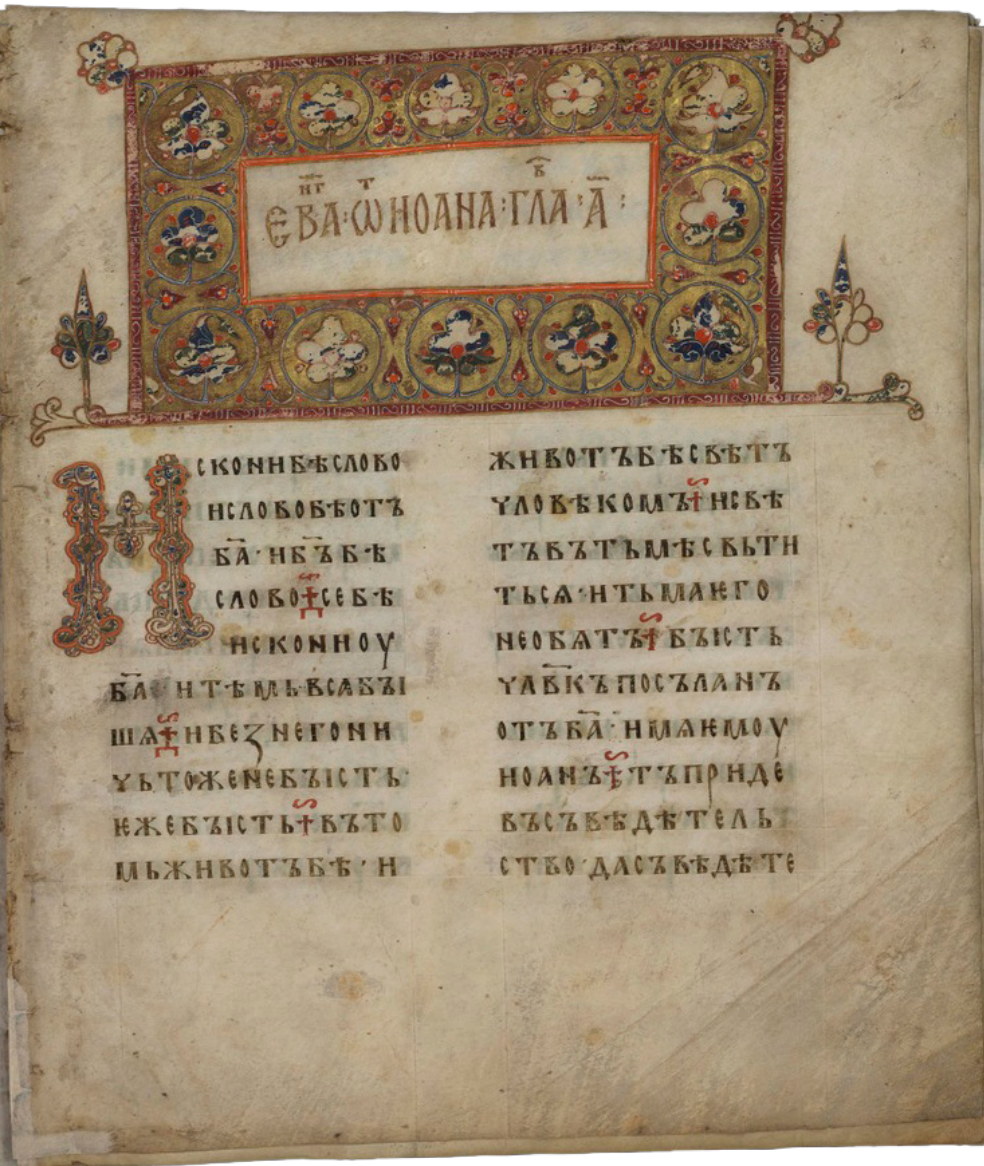 ЕВА҃НГ·Ѿ ИОАНА:ГЛА҃В·А҃:
ИСКОНИБѢСЛОВО
ИСЛОВОБѢОТЪ
БА҃·ИБЪ҃БѢ
СЛОВО СЕБѢ
ИСКОНИОУ
БА҃·ИТѢМЬВСѦБЪІ
ШѦ ИБЕЗНЕГОНИ
ЧЬТОЖЕНЕБЪІСТЬ·
ѤЖЕБЪІСТЬ ВЪТО
МЬЖИВОТЪБѢ·И
ЖИВОТЪБѢСВѢТЪ
ЧЛОВѢКОМЪ ИСВѢ
ТЪВЪТЬМѢСВЬТИ
ТЬСѦ·ИТЬМАѤГО
НЕОБѦТЪ БЪІСТЬ
ЧЛВ҃КЪПОСЪЛАНЪ
ОТЪБА҃·ИМѦѤМОУ
ИОАНЪ ТЪПРИДЕ
ВЪСЪВѢДѢТЕЛЬ
СТВО·ДАСЪВѢДѢТЕ